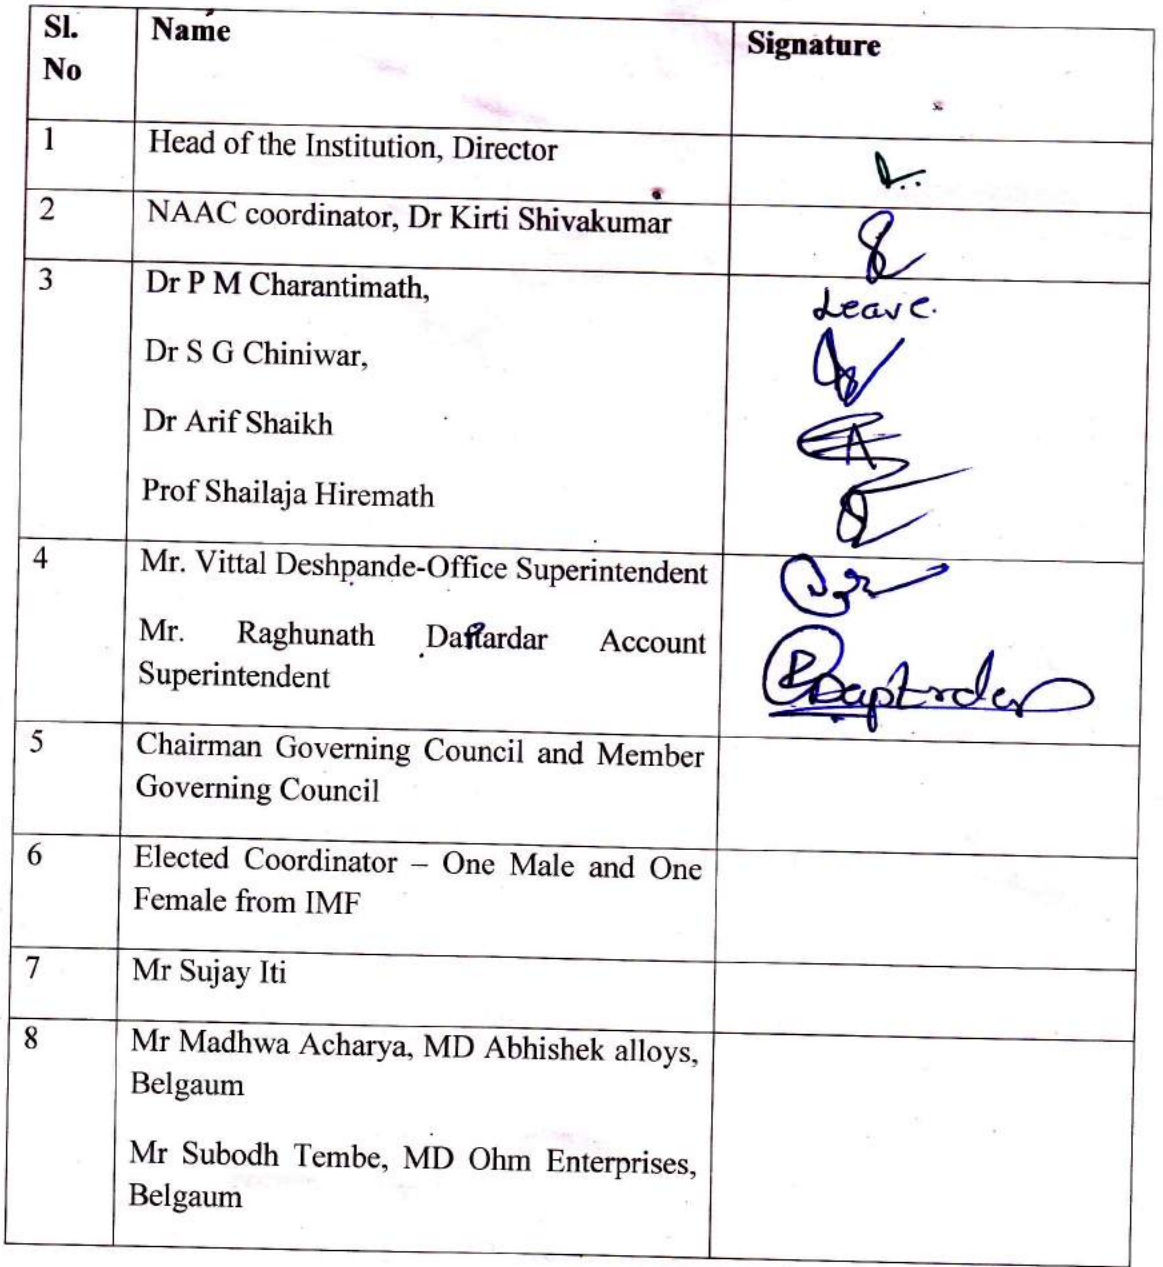 Sl. No
Name
Signature
1
Head of the Institution, Director
2
NAAC coordinator, Dr Kirti Shivakumar
3
Dr P M Charantimath,
Leave.
Dr S G Chiniwar,
Dr Arif Shaikh
Prof Shailaja Hiremath
4
Mr. Vittal Deshpande-Office Superintendent
Mr. Raghunath Daftardar Account
Superintendent
5
Chairman Governing Council and Member
Governing Council
6
Elected Coordinator – One Male and One
Female from IMF
7
Mr Sujay Iti
8
Mr Madhwa Acharya, MD Abhishek alloys,
Belgaum
Mr Subodh Tembe, MD Ohm Enterprises,
Belgaum